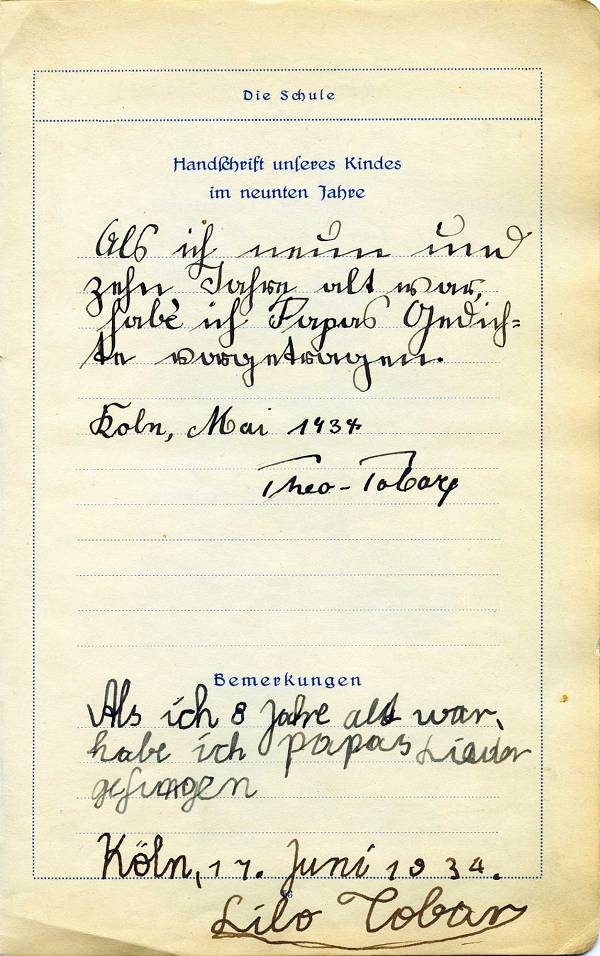 Die Schule
Handschrift unseres Kindes
im neunten Jahre
Als ich neun und
zehn Jahre alt war,
habe ich Papas Gedich=
te vorgetragen.
Köln, Mai 1934
Theo-Tobar
Bemerkungen
Als ich 8 Jahre alt war,
habe ich Papas Lieder
gesungen
Köln, 17. Juni 1934.
Lilo Tobar